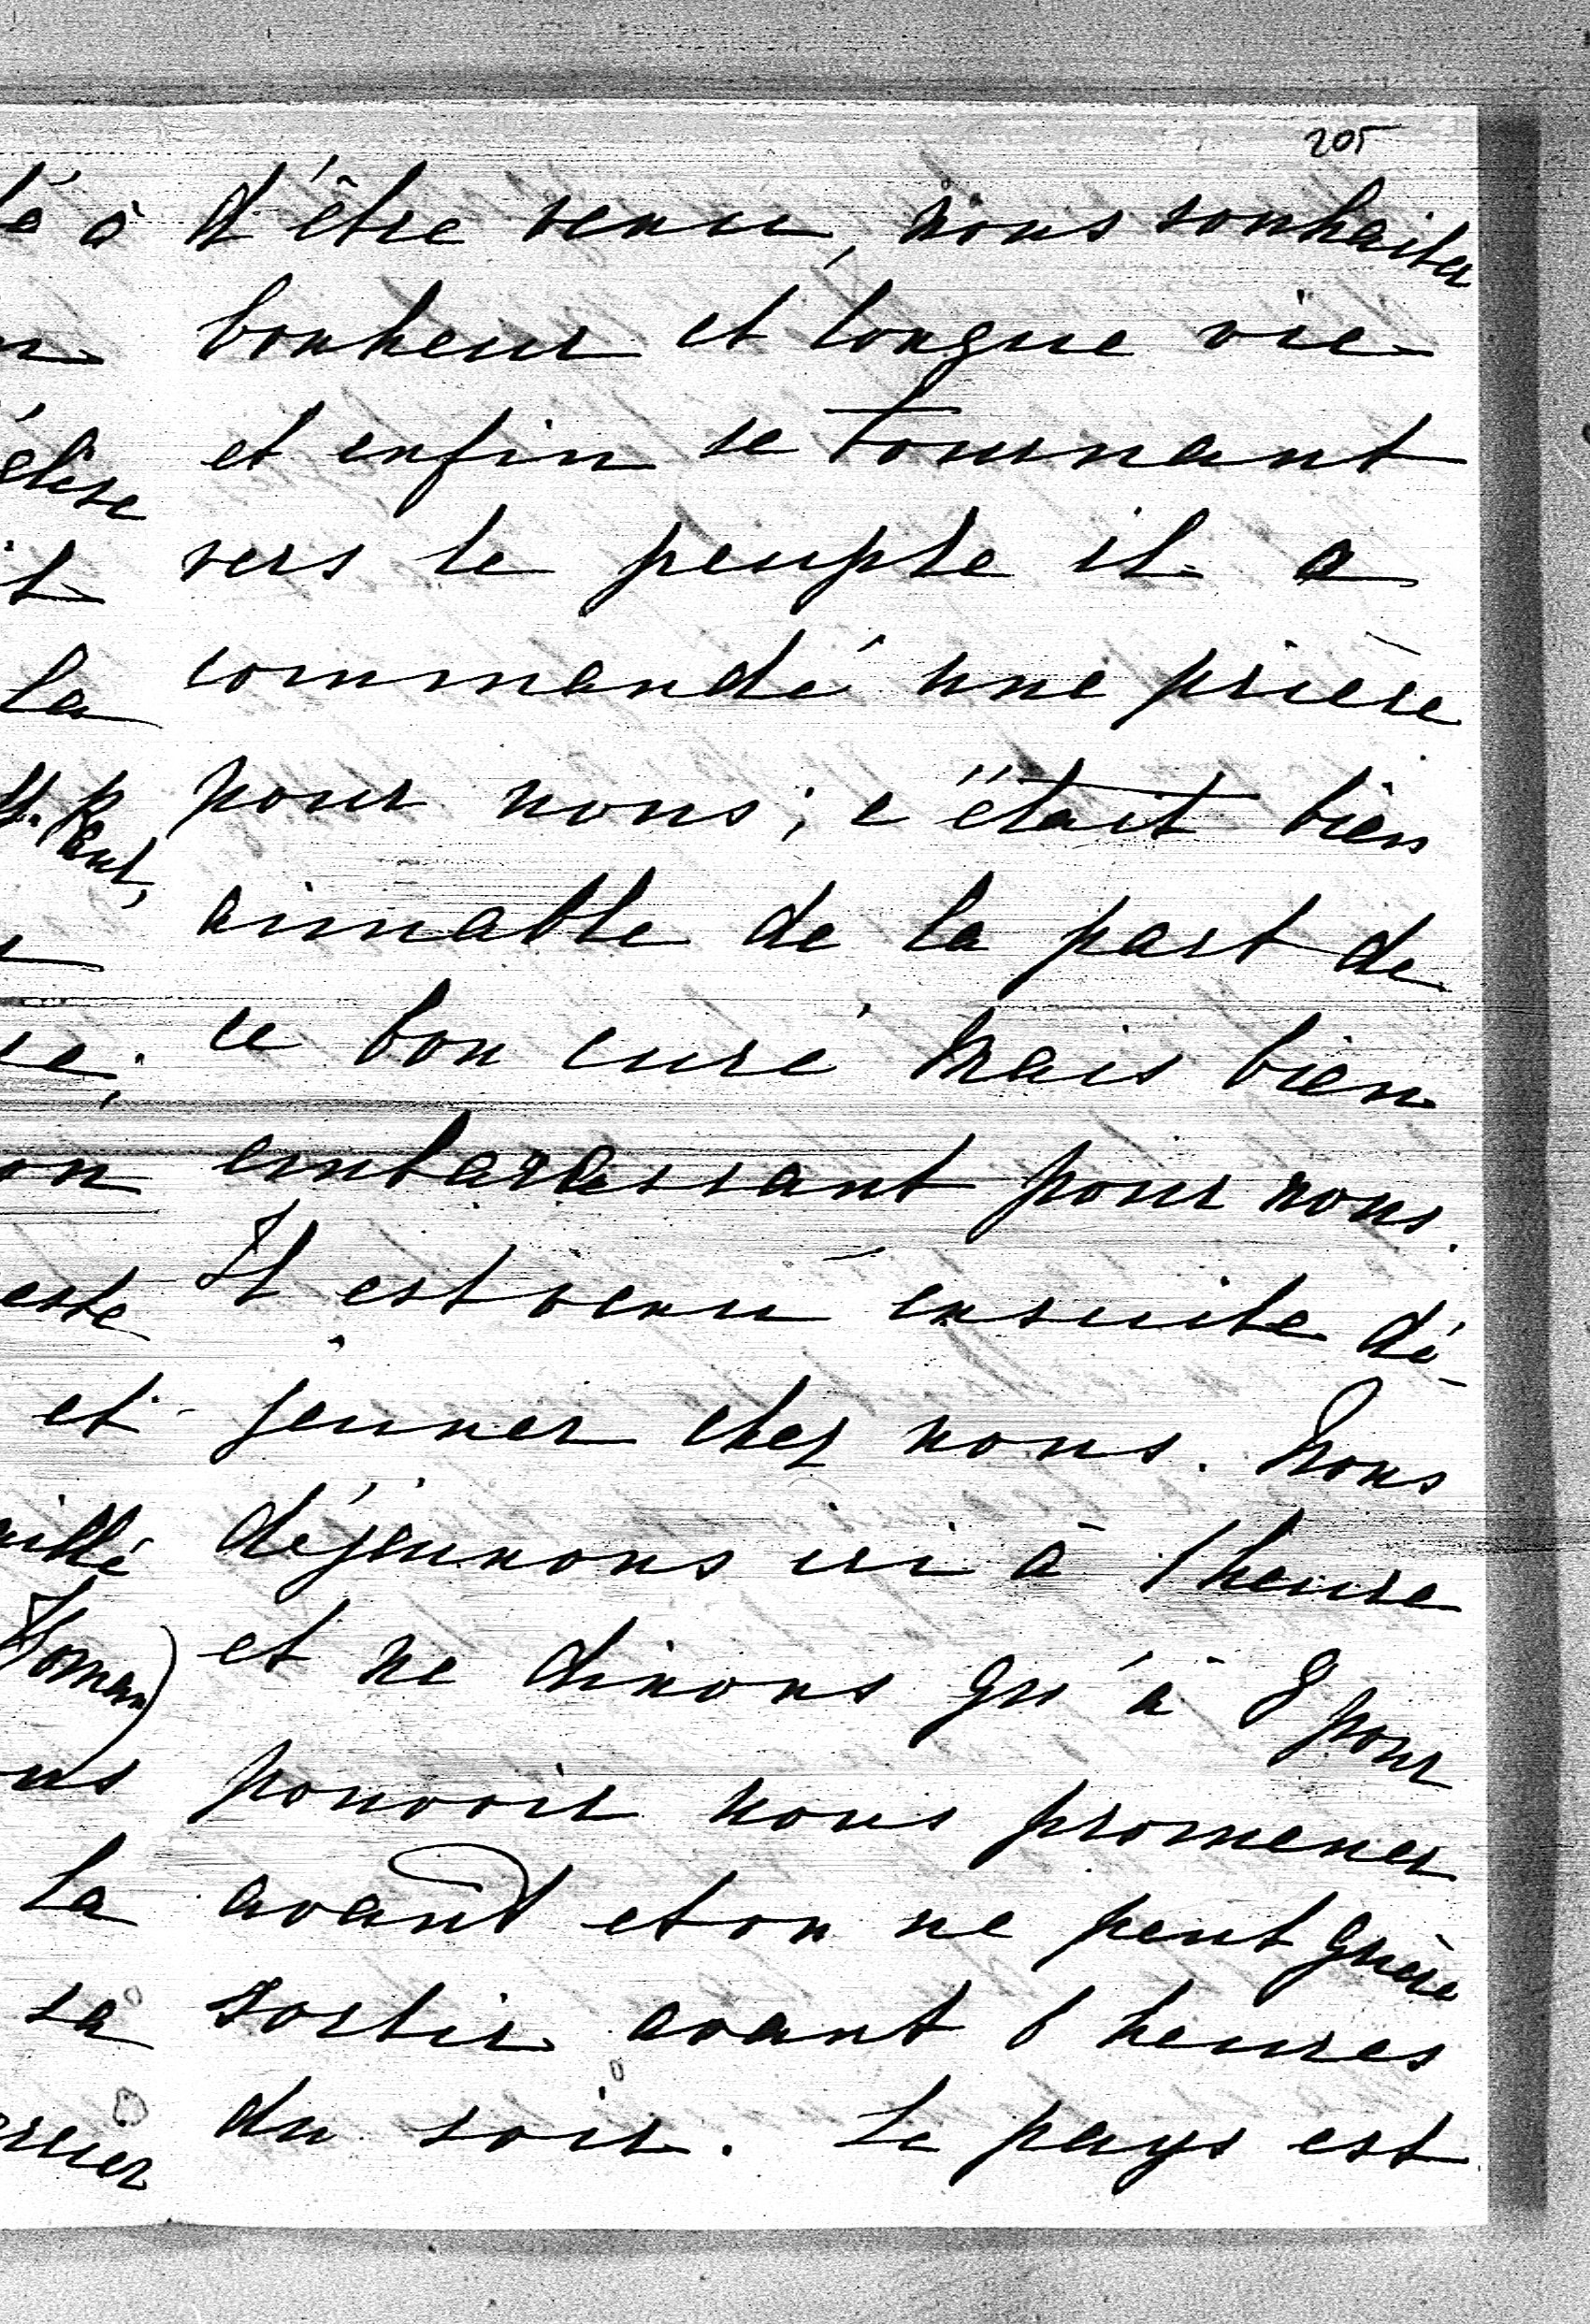 205
d'être venu, nous souhaiter
bonheur et longue vie
et enfin se tournant
vers le peuple il a
commandé une prière
pour nous; c'était bien
aimable de la part de
ce bon curé mais bien
embarrassant pour nous.
Il est venu ensuite dé-
jeuner chez nous. Nous
déjeunons ici à 1 heure
et ne dinons qu'à 8 pour
pouvoir nous promener
avant et on ne peut guère
sortir avant 6 heures
du soir. Le pays est